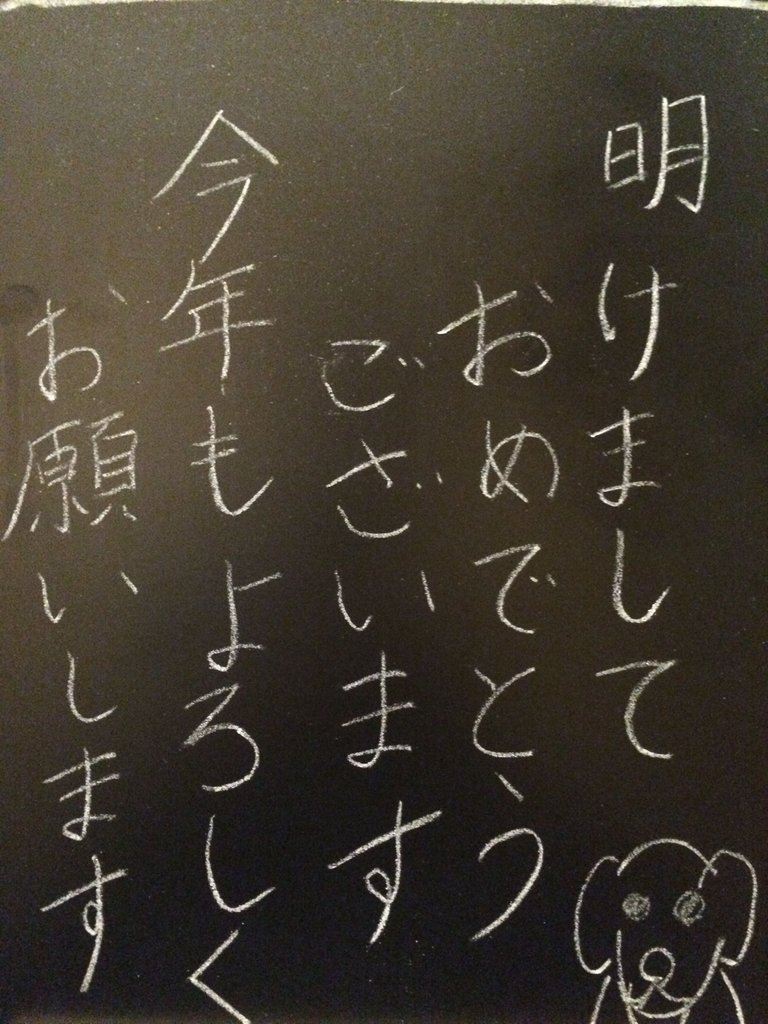 明けまして
おめでとう
ございます
今年もよろしく
お願いします